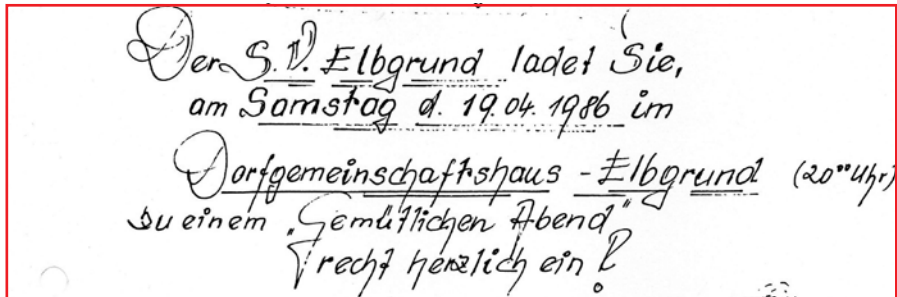 Der S.V. Elbgrund ladet Sie,
am Samstag d. 19.04.1986 im
Dorfgemeinschaftshaus - Elbgrund (20⁰⁰ Uhr)
zu einem "Gemütlichen Abend"
recht herzlich ein!